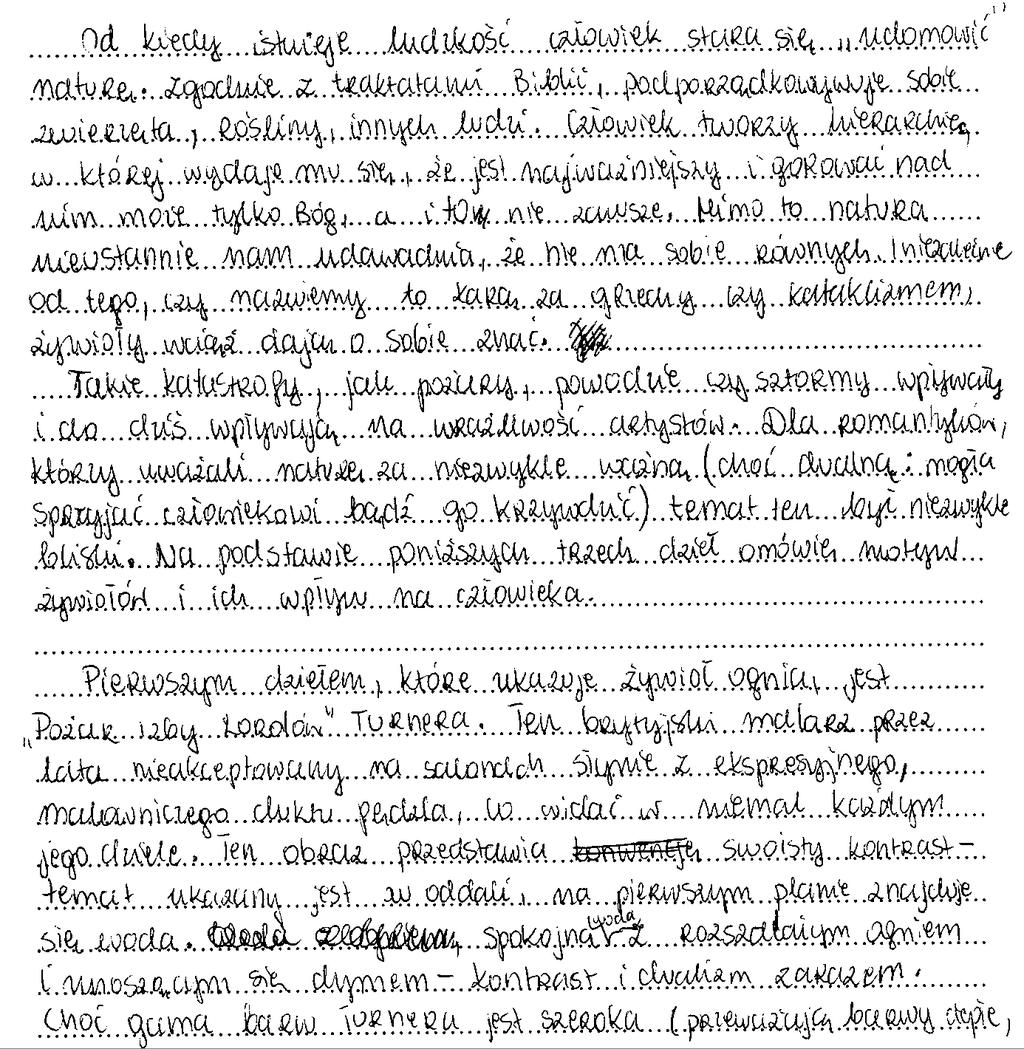 Od kiedy istnieje ludzkość człowiek stara się „udomowić"
naturę. Zgodnie z traktatami Biblii, podporządkowywuje sobie
zwierzęta, rośliny, innych ludzi. Człowiek tworzy hierarchię,
w której wydaje mu się, że jest najważniejszy i górować nad
nim może tylko Bóg, a i to nie zawsze. Mimo to natura
nieustannie nam udawadnia, że nie ma sobie równych. I niezależnie
od tego, czy nazwiemy to karą za grzechy czy kataklizmem,
żywioły wciąż dają o sobie znać.
Takie katastrofy, jak pożary, powodzie czy sztormy wpływały
i do dziś wpływają na wrażliwość artystów. Dla romantyków,
którzy uważali naturę za niezwykle ważną (choć dualną: mogła
sprzyjać człowiekowi bądź go krzywdzić) temat ten był niezwykle
bliski. Na podstawie poniższych trzech dzieł omówię motyw
żywiołów i ich wpływ na człowieka.
Pierwszym dziełem, które ukazuje żywioł ognia, jest
„Pożar izby Lordów" Turnera. Ten brytyjski malarz przez
lata nieakceptowany na salonach słynie z ekspresyjnego,
malowniczego duktu pędzla, co widać w niemal każdym
jego dziele. Ten obraz przedstawia konwencję swoisty kontrast –
temat ukazany jest w oddali, na pierwszym planie znajduje
się woda. spokojna woda z rozszalałym ogniem
i unoszącym się dymem – kontrast i dualizm zarazem.
Choć gama barw Turnera jest szeroka (przeważają barwy ciepłe,